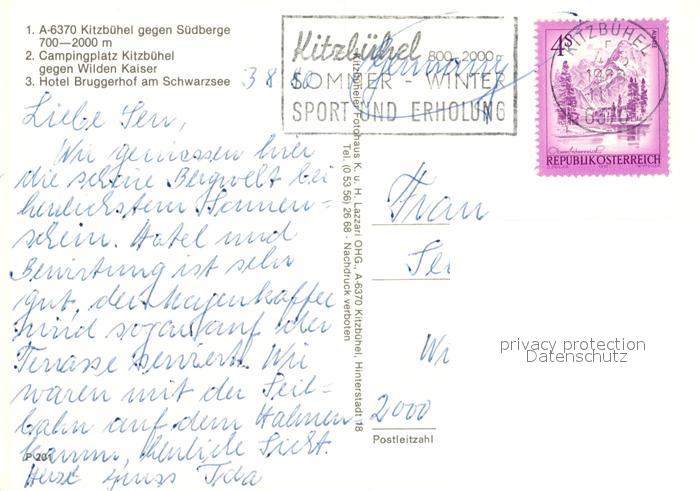 1. A-6370 Kitzbühel gegen Südberge
700—2000 m
2. Campingplatz Kitzbühel
gegen Wilden Kaiser
3. Hotel Bruggerhof am Schwarzsee
3 8 80
Liebe Sen,
Wir geniessen hier
die schöne Bergwelt bei
herrlichstem Sonnen=
schein. Hotel und
Bewirtung ist sehr
gut, der Morgenkaffee
wird sogar auf der
Terrasse serviert. Wir
waren mit der Seil=
bahn auf dem Hahnen
kamm, herrliche Sicht.
Herzl. Gruss Ida
P 201
Kitzbüheler Fotohaus K. u. H. Lazzari OHG., A-6370 Kitzbühel, Hinterstadt 18
Tel. (0 53 56) 26 68 - Nachdruck verboten
Kitzbühel 800-2000
SOMMER - WINTER
SPORT UND ERHOLUNG
Germany
KITZBÜHEL
4S
REPUBLIK ÖSTERREICH
Frau
Se
Wi
2000
Postleitzahl
privacy protection
Datenschutz